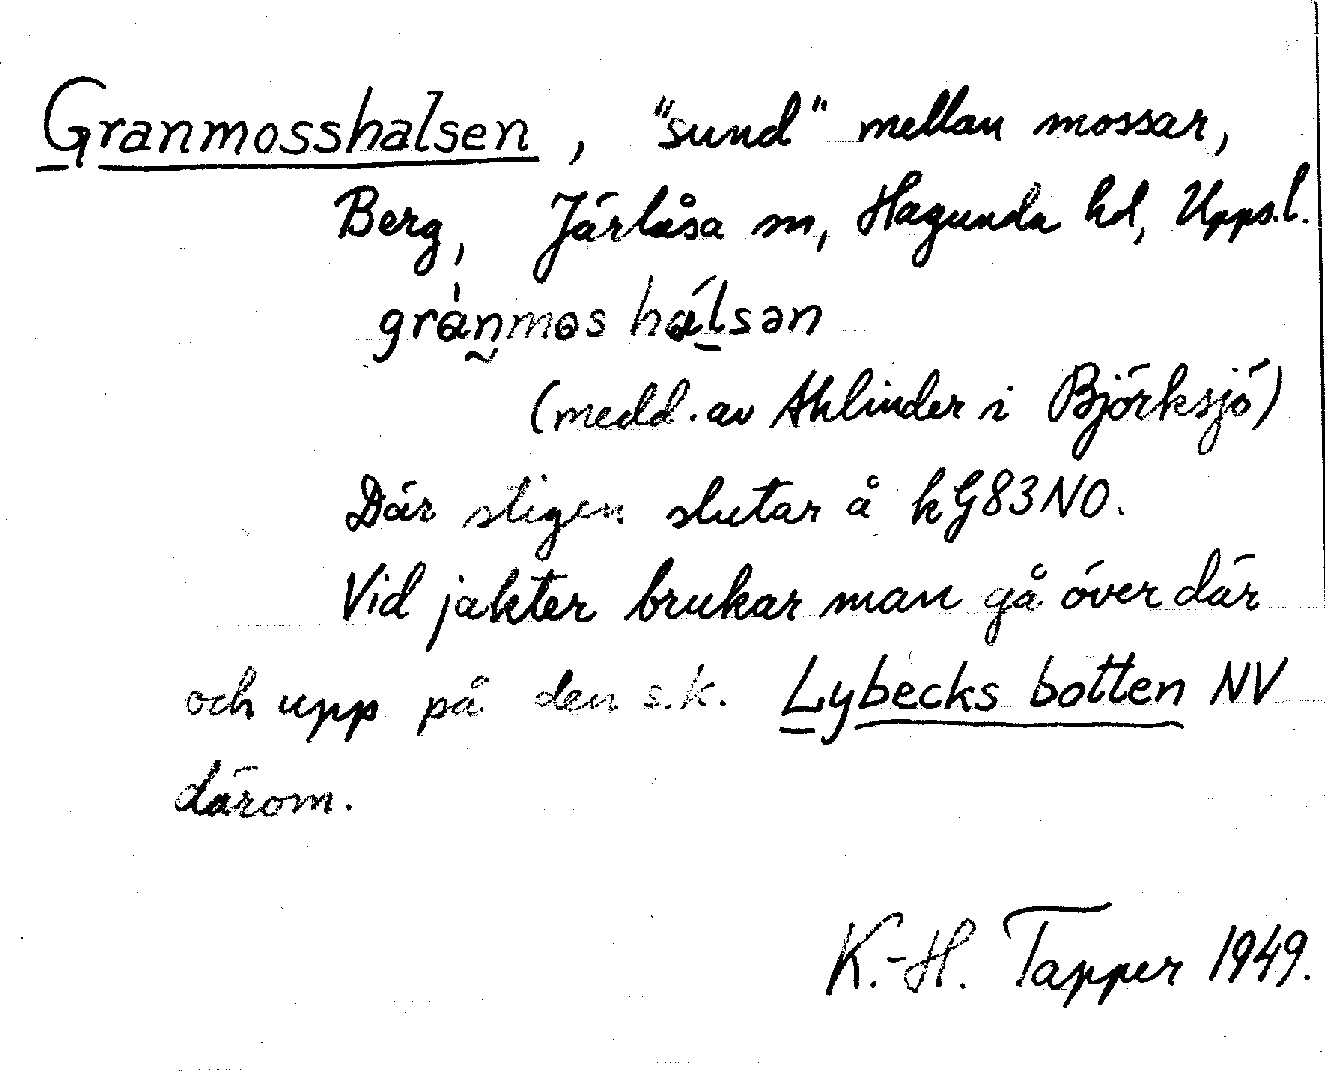 Granmosshalsen, "sund" mellan mossar,
Berg, Järlåsa sn, Hagunda hd, Upps.l.
grànmos hálsən
(medd. av Ahlinder i Björksjö)
Där stigen slutar å kG83NO.
Vid jakter brukar man gå över där
och upp på den s.k. Lybecks botten NV
därom.
K.-H. Tapper 1949.